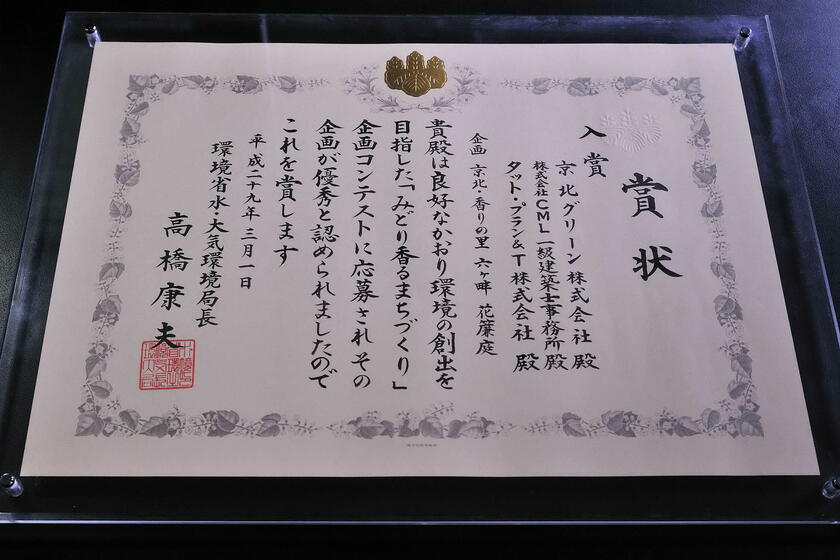 賞状
入賞
京北グリーン株式会社 殿
株式会社CML一級建築士事務所 殿
タット・プラン&T株式会社 殿
企画 京北・香りの里 六ヶ畔 花簾庭
貴殿は良好なかおり環境の創出を
目指した「みどり香るまちづくり」
企画コンテストに応募されその
企画が優秀と認められましたので
これを賞します
平成二十九年三月一日
環境省水・大気環境局長
高橋康夫